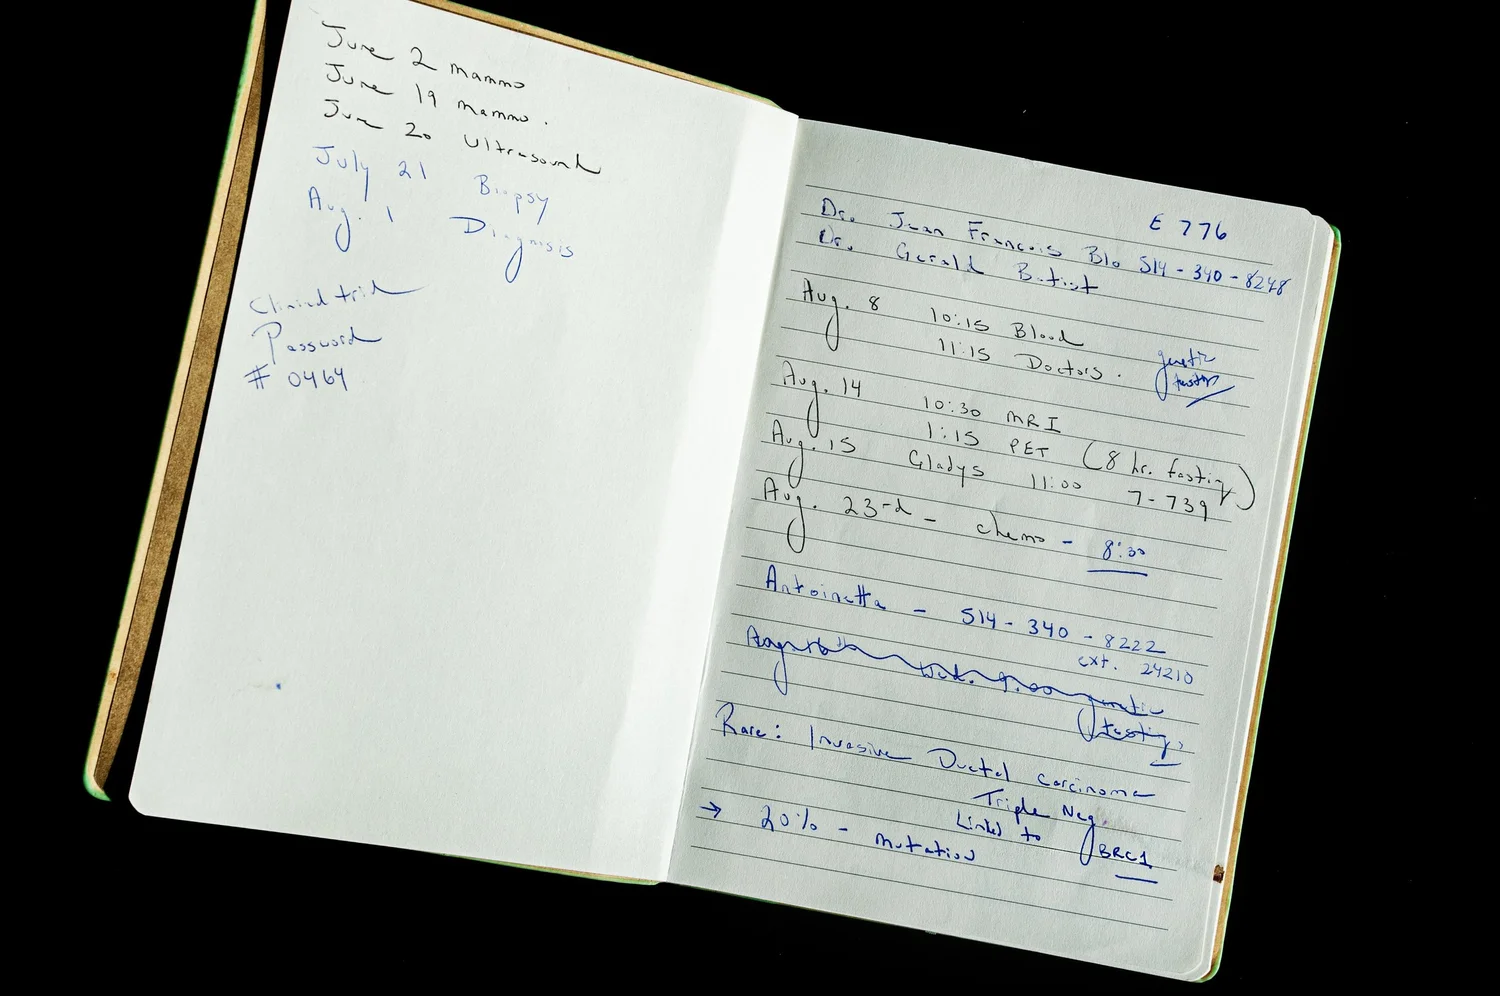 June 2 mammo
June 19 mammo.
June 20 Ultrasound
July 21 Biopsy
Aug. 1 Diagnosis
Clinical trial
Password
# 0464
E 776
Dr. Jean Francois Blo 514-340-8248
Dr. Gerald Batist
Aug. 8 10:15 Blood
11:15 Doctors.
genetic
testing
Aug. 14 10:30 MRI
1:15 PET (8 hr. fasting)
Aug. 15 Gladys 11:00 7-739
Aug. 23rd - chemo - 8:30
Antoinetta - 514-340-8222
ext. 24210
August Wed. 9:00 genetic
testing
Rare: Invasive Ductal carcinoma
Triple Neg.
Linked to BRC1
→ 20% - mutation